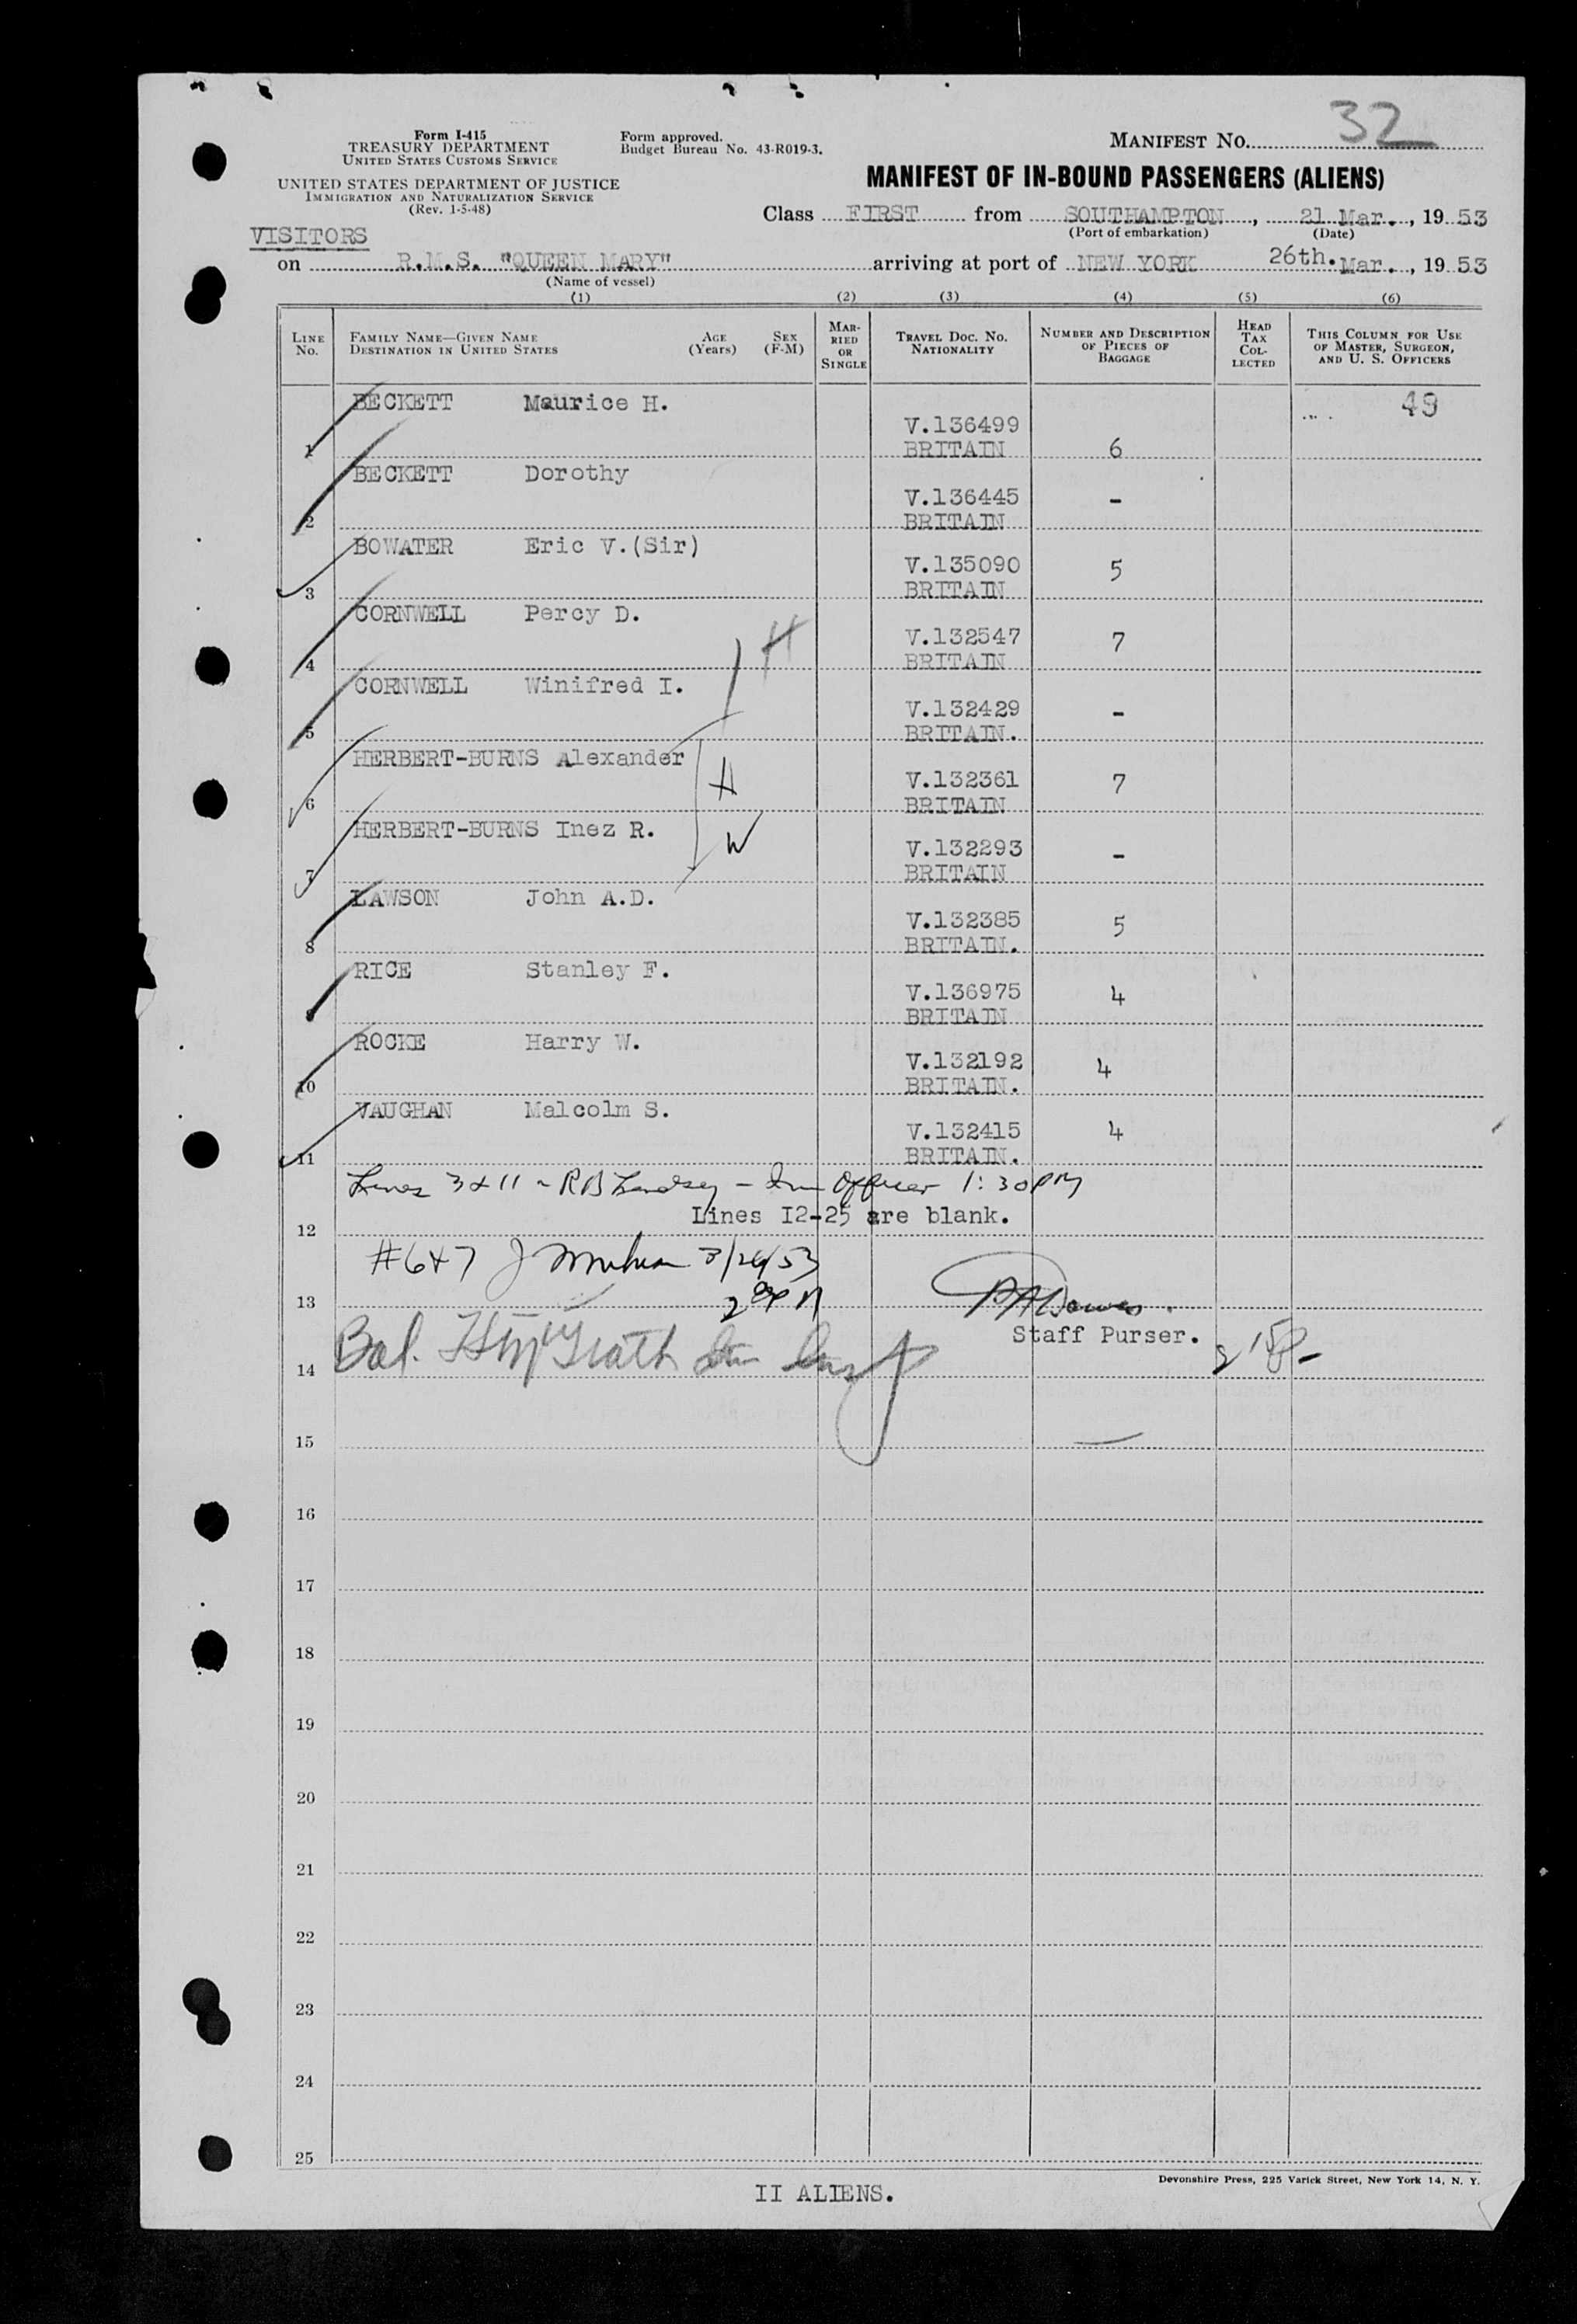 Form I-415
TREASURY DEPARTMENT
UNITED STATES CUSTOMS SERVICE
UNITED STATES DEPARTMENT OF JUSTICE
IMMIGRATION AND NATURALIZATION SERVICE
(Rev. 1-5-48)
Form approved.
Budget Bureau No. 43-R019-3.
MANIFEST NO. 32
MANIFEST OF IN-BOUND PASSENGERS (ALIENS)
Class FIRST from SOUTHAMPTON, 21 Mar., 1953
(Port of embarkation) (Date)
VISITORS
on R.M.S. "QUEEN MARY" arriving at port of NEW YORK 26th. Mar., 1953
(Name of vessel)
(1) (2) (3) (4) (5) (6)
LINE No. FAMILY NAME—GIVEN NAME DESTINATION IN UNITED STATES AGE (Years) SEX (F-M) MARRIED OR SINGLE TRAVEL DOC. NO. NATIONALITY NUMBER AND DESCRIPTION OF PIECES OF BAGGAGE HEAD TAX COLLECTED THIS COLUMN FOR USE OF MASTER, SURGEON, AND U. S. OFFICERS
BECKETT Maurice H. 49
V.136499
1 BRITAIN 6
BECKETT Dorothy
V.136445 -
2 BRITAIN
BOWATER Eric V.(Sir)
V.135090 5
3 BRITAIN
CORNWELL Percy D.
H V.132547 7
4 BRITAIN
CORNWELL Winifred I.
V.132429 -
5 BRITAIN.
HERBERT-BURNS Alexander
H V.132361 7
6 BRITAIN
HERBERT-BURNS Inez R.
W V.132293 -
7 BRITAIN
LAWSON John A.D.
V.132385 5
8 BRITAIN.
RICE Stanley F.
V.136975 4
9 BRITAIN
ROCKE Harry W.
V.132192 4
10 BRITAIN.
VAUGHAN Malcolm S.
V.132415 4
11 BRITAIN.
Lines 3 & 11 - RB Lindsey - Imm Officer 1:30PM
Lines I2-25 are blank.
12
#6&7 J 3/26/53
13 2 PM
Staff Purser.
14 Bal.
15
16
17
18
19
20
21
22
23
24
25
Devonshire Press, 225 Varick Street, New York 14, N. Y.
II ALIENS.